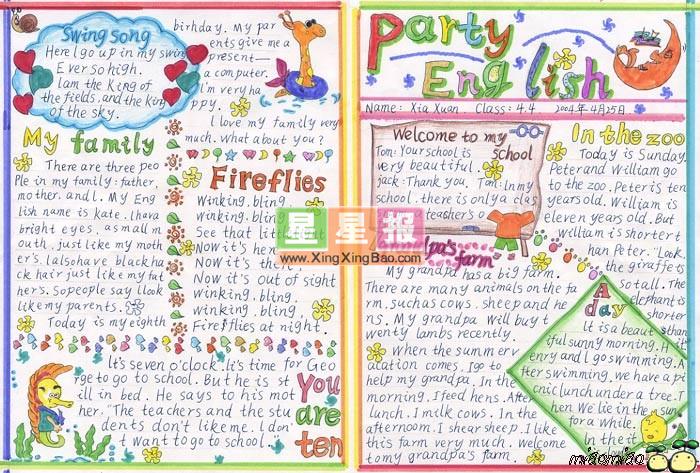 Swing song
Here I go up in my swing
Ever so high.
I am the King of
the fields, and the king
of the sky.
My family
There are three peo
Ple in my family: father,
mother, and I. My Eng
lish name is Kate. I hava
bright eyes, a small m
outh, just like my moth
er's. I also have black ha
ck hair just like my fat
hers. So people say I look
like my parents.
Today is my eighth
birthday. My par
ents give me a
present—
a computer.
I'm very ha
ppy.
I love my family very
much. What about you?
Fireflies
Winking, bling,
winking, bling.
See that little
Now it's here
Now it's there,
Now it's out of sight
winking, bling,
winking, bling
Fireflies at night.
It's seven o'clock. It's time for Geo
rge to go to school. But he is st
ill in bed. He says to his mot
her, "The teachers and the stu
dents don't like me. I don'
t want to go to school.
You
are
ten
Party
English
Name: Xia Xuan. Class: 4.4 2004年4月25日
Welcome to my
school
Tom: Your school is
very beautiful.
Jack: Thank you. Tom: In my
school, there is only a clas
teacher's o
pa's
farm"
My grandpa has a big farm.
There are many animals on the fa
rm, such as cows, sheep and he
ns. My grandpa will buy t
wenty lambs recently.
When the summer v
acation comes. I go to
help my grandpa. In the
morning. I feed hens. After
lunch. I milk cows. In the
afternoom. I shear sheep. I like
this farm very much. Welcome
to my grandpa's farm.
In the zoo
Today is Sunday.
Peter and William go
to the zoo. Peter is ten
years old. William is
eleven years old. But
William is shorter t
han Peter. "Look,
the giraffe is
so tall. The
elephant is
shorter
than
A
day
It is a beaut
iful sunny morning. H
enry and I go swimming. A
fter swimming, we have a pi
cnic lunch under a tree. T
hen. We lie in the sun
for a while.
In the
星星报
www.XingXingBao.com
miaomiao